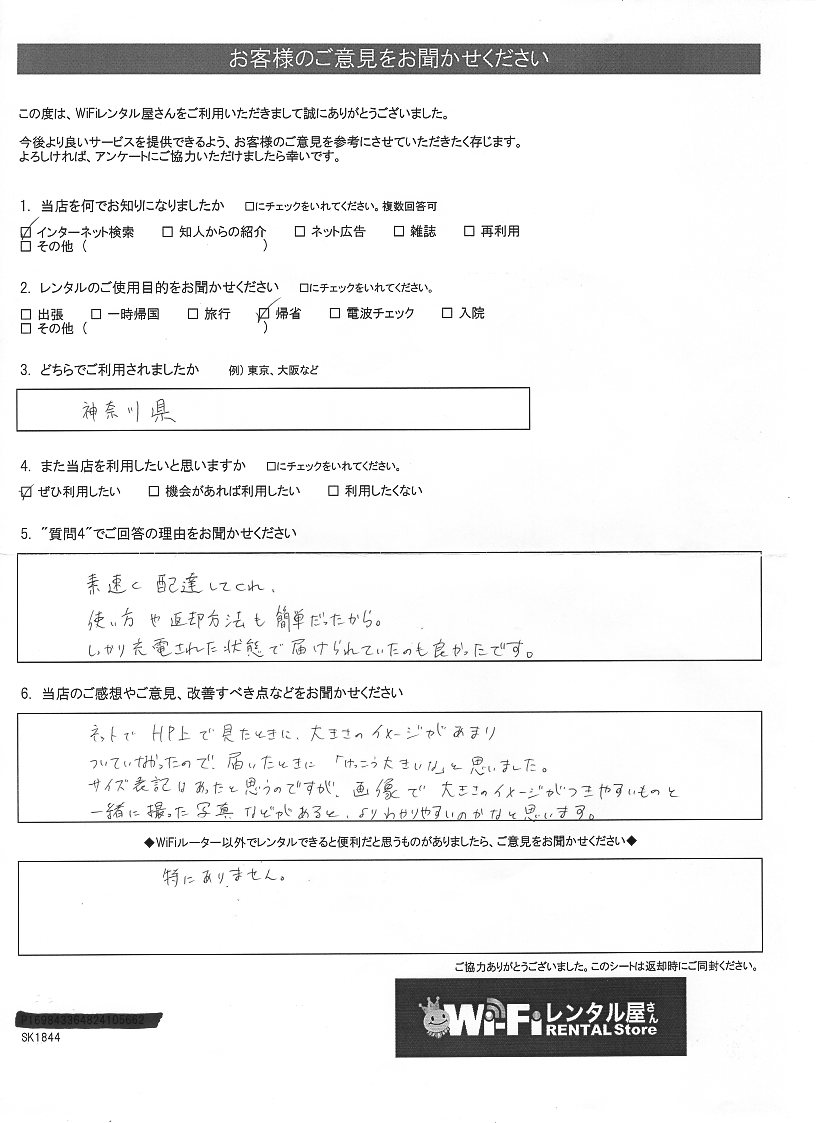 お客様のご意見をお聞かせください
この度は、WiFiレンタル屋さんをご利用いただきまして誠にありがとうございました。
今後より良いサービスを提供できるよう、お客様のご意見を参考にさせていただきたく存じます。
よろしければ、アンケートにご協力いただけましたら幸いです。
1. 当店を何でお知りになりましたか □にチェックをいれてください。複数回答可
☑ インターネット検索 □ 知人からの紹介 □ ネット広告 □ 雑誌 □ 再利用
□ その他 ( )
2. レンタルのご使用目的をお聞かせください □にチェックをいれてください。
□ 出張 □ 一時帰国 □ 旅行 ☑ 帰省 □ 電波チェック □ 入院
□ その他 ( )
3. どちらでご利用されましたか 例) 東京、大阪など
神奈川県
4. また当店を利用したいと思いますか □にチェックをいれてください。
☑ ぜひ利用したい □ 機会があれば利用したい □ 利用したくない
5. "質問4"でご回答の理由をお聞かせください
素速く配達してくれ、
使い方や返却方法も簡単だったから。
しっかり充電された状態で届けられていたのも良かったです。
6. 当店のご感想やご意見、改善すべき点などをお聞かせください
ネットでHP上で見たときに、大きさのイメージがあまり
ついていなかったので、届いたときに「けっこう大きいな」と思いました。
サイズ表記はあったと思うのですが、画像で大きさのイメージがつきやすいものと
一緒に撮った写真などがあると、よりわかりやすいのかなと思います。
◆WiFiルーター以外でレンタルできると便利だと思うものがありましたら、ご意見をお聞かせください◆
特にありません。
ご協力ありがとうございました。このシートは返却時にご同封ください。
SK1844
Wi-Fiレンタル屋さん
RENTAL Store